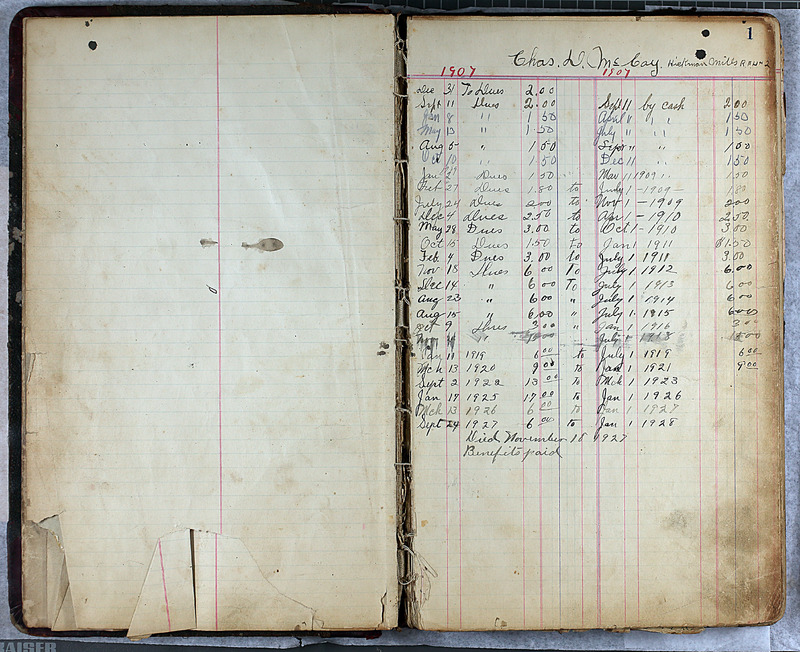 1
Chas. D. McCay, Hickman Mills R #
1907 1907
Dec 31 To Dues 2.00
Sept 11 Dues 2.00 Sept 11 by cash 2 00
Jan 8 " 1 50 April 11 " " 1 50
May 13 " 1.50 July " " 1 50
Aug 5 " 1 50 Sept " " 1 50
Oct 10 " 1 50 Dec 11 " 1 50
Jan Dues 1 50 " Mar 11 1909 " 1.50
Feb 27 Dues 1.80 to July 1 - 1909 - 1 80
July 24 Dues 2 00 to Nov 1 - 1909 2 00
Dec 4 Dues 2.50 to Apr 1 - 1910 2.50
May 28 Dues 3.00 to Oct 1 - 1910 3 00
Oct 15 Dues 1.50 to Jan 1 1911 $1.50
Feb 4 Dues 3.00 to July 1 1911 3.00
Nov 18 Dues 6 00 To July 1 1912 6.00
Dec 14 " 6 00 To July 1 1913 6 00
Aug 23 " 6 00 " July 1 1914 6 00
Aug 15 " 6 00 " July 1. 1915 6 00
Oct 9 Dues 3 00 " Jan 1 1916 3 00
July 1 1918
Jan 11 1919 6 00 to July 1 1919 6 00
Mch 13 1920 9 00 to Jan 1 1921 9 00
Sept 2 1922 13 00 to Mch 1 1923
Jan 17 1925 17 00 to Jan 1 1926
Mch 13 1926 6 00 to Jan 1 1927
Sept 24 1927 6 00 to Jan 1 1928
Died November 15 1927
Benefits paid